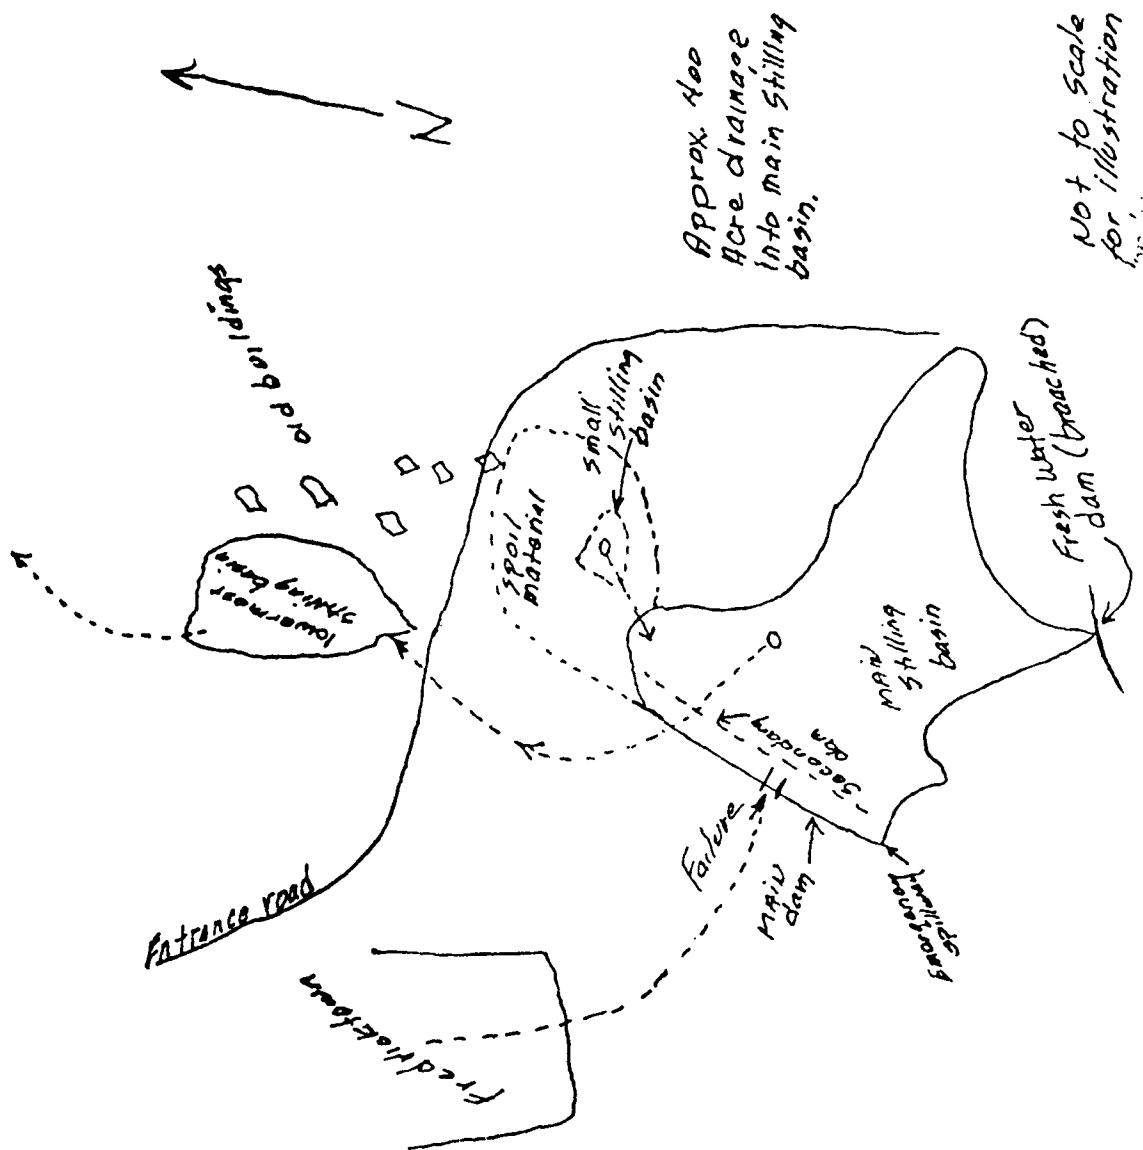 N
Approx. 400
Acre drainage
into main stilling
basin.
Not to scale
for illustration
old buildings
lowermost
stilling basin
spoil
material
small
stilling
basin
Fresh Water
dam (breached)
MAIN
stilling
basin
Secondary
dam
Failure
MAIN
dam
Emergency
spillway
Entrance road
Fredricktown